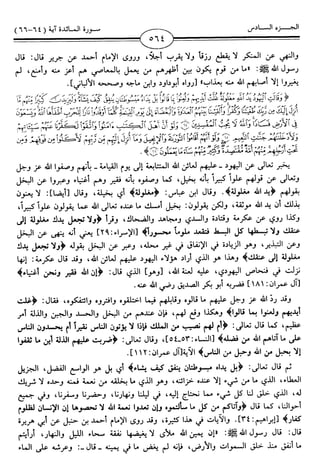 الجزء السادس
سورة المائدة آية (٦٤-٦٦)
٥٦٤
والنهي عن المنكر لا يقطع رزقاً ولا يقرب أجلاً، وروى الإمام أحمد عن جرير قال: قال
رسول الله ﷺ: «ما من قوم يكون بين أظهرهم من يعمل بالمعاصي هم أعز منه وأمنع، لم
يغيروا إلا أصابهم الله منه بعذاب» [رواه أبوداود وابن ماجه وصححه الألباني].
﴿وَقَالَتِ الْيَهُودُ يَدُ اللَّهِ مَغْلُولَةٌ غُلَّتْ أَيْدِيهِمْ وَلُعِنُوا بِمَا قَالُوا بَلْ يَدَاهُ مَبْسُوطَتَانِ يُنفِقُ كَيْفَ يَشَاءُ وَلَيَزِيدَنَّ كَثِيرًا مِّنْهُم مَّا
يخبر تعالى عن اليهود ـ عليهم لعائن الله المتتابعة إلى يوم القيامة ـ بأنهم وصفوا الله عز وجل
وتعالى عن قولهم علواً كبيراً بأنه بخيل، كما وصفوه بأنه فقير وهم أغنياء وعبروا عن البخل
بقولهم ﴿يد الله مغلولة﴾. وقال ابن عباس: ﴿مغلولة﴾ أي بخيلة، وقال [أيضاً]: لا يعنون
بذلك أن يد الله موثقة، ولكن يقولون: بخيل أمسك ما عنده تعالى الله عما يقولون علواً كبيراً،
وكذا روي عن عكرمة وقتادة والسدي ومجاهد والضحاك، وقرأ ﴿ولا تجعل يدك مغلولة إلى
عنقك ولا تبسطها كل البسط فتقعد ملوماً محسوراً﴾ [الإسراء: ٢٩] يعني أنه ينهى عن البخل
وعن التبذير، وهو الزيادة في الإنفاق في غير محله، وعبر عن البخل بقوله ﴿ولا تجعل يدك
مغلولة إلى عنقك﴾ وهذا هو الذي أراد هؤلاء اليهود عليهم لعائن الله، وقد قال عكرمة: إنها
نزلت في فنحاص اليهودي، عليه لعنة الله، [وهو] الذي قال: ﴿إن الله فقير ونحن أغنياء﴾
[آل عمران: ١٨١] فضربه أبو بكر الصديق رضي الله عنه.
وقد ردّ الله عز وجل عليهم ما قالوه وقابلهم فيما اختلقوه وافتروه وائتفكوه، فقال: ﴿غلت
أيديهم ولعنوا بما قالوا﴾ وهكذا وقع لهم، فإن عندهم من البخل والحسد والجبن والذلة أمر
عظيم، كما قال تعالى: ﴿أم لهم نصيب من الملك فإذا لا يؤتون الناس نقيراً أم يحسدون الناس
على ما آتاهم الله من فضله﴾ [النساء: ٥٣ـ٥٤]، وقال تعالى: ﴿ضربت عليهم الذلة أين ما ثقفوا
إلا بحبل من الله وحبل من الناس﴾ الآية[آل عمران: ١١٢].
ثم قال تعالى: ﴿بل يداه مبسوطتان ينفق كيف يشاء﴾ أي بل هو الواسع الفضل، الجزيل
العطاء، الذي ما من شيء إلا عنده خزائنه، وهو الذي ما بخلقه من نعمة فمنه وحده لا شريك
له، الذي خلق لنا كل شيء مما نحتاج إليه، في ليلنا ونهارنا، وحضرنا وسفرنا، وفي جميع
أحوالنا، كما قال ﴿وآتاكم من كل ما سألتموه وإن تعدوا نعمة الله لا تحصوها إن الإنسان لظلوم
كفار﴾ [إبراهيم: ٣٤]. والآيات في هذا كثيرة، وقد روى الإمام أحمد بن حنبل عن أبي هريرة
قال: قال رسول الله ﷺ: «إن يمين الله ملأى لا يغيضها نفقة سحاء الليل والنهار، أرأيتم
ما أنفق منذ خلق السموات والأرض، فإنه لم يغض ما في يمينه ـ قال ـ: وعرشه على الماء